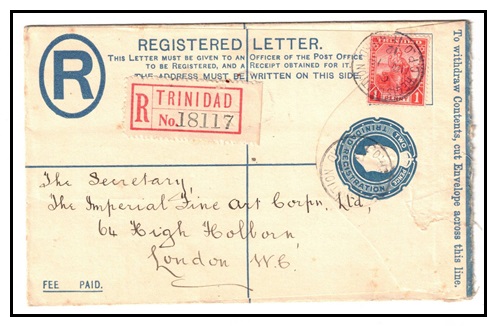 REGISTERED LETTER.
THIS LETTER MUST BE GIVEN TO AN OFFICER OF THE POST OFFICE
TO BE REGISTERED, AND A RECEIPT OBTAINED FOR IT.
THE ADDRESS MUST BE WRITTEN ON THIS SIDE.
R
R TRINIDAD
No. 18117
1 PENNY 1
TRINIDAD REGISTRATION
TWO PENCE
The Secretary,
The Imperial Fine Art Corpn. Ltd,
64 High Holborn,
London W.C.
FEE PAID.
To withdraw Contents, cut Envelope across this line.